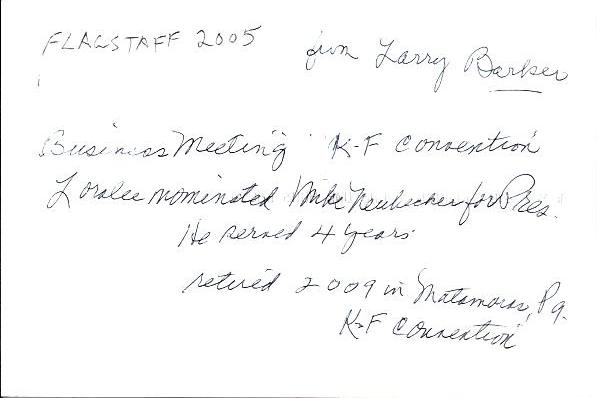 FLAGSTAFF 2005 from Larry Barker
Business Meeting K-F Convention
Loralee nominated Mike Neubecker for Pres.
He served 4 years
retired 2009 in Matamoras, Pa.
K-F Convention